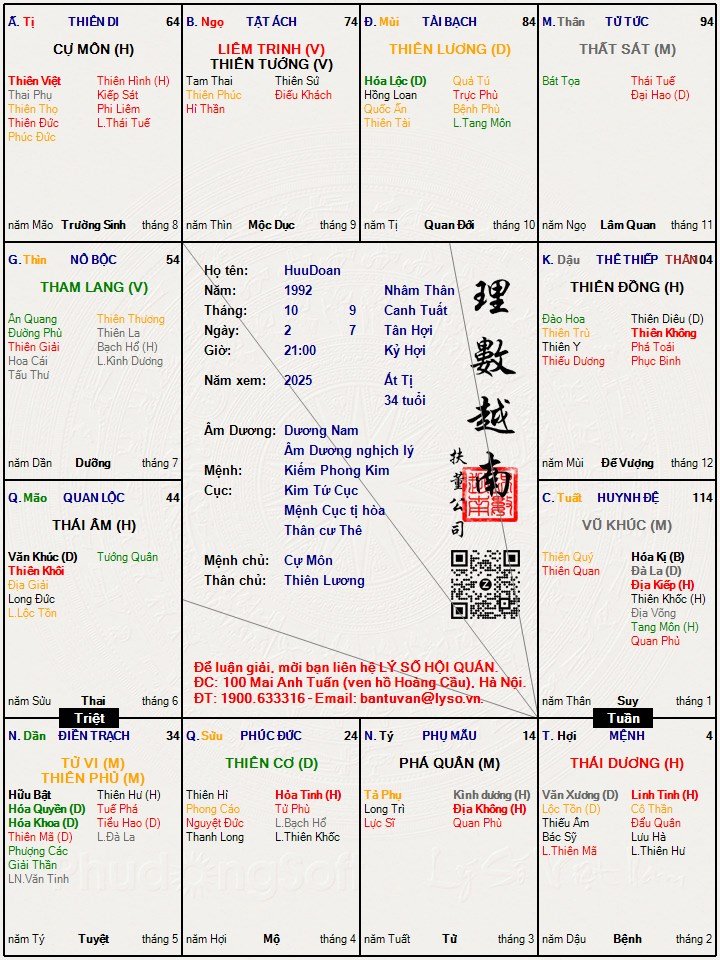 Ấ. Tị THIÊN DI 64
CỰ MÔN (H)
Thiên Việt Thiên Hình (H)
Thai Phụ Kiếp Sát
Thiên Thọ Phi Liêm
Thiên Đức L.Thái Tuế
Phúc Đức
năm Mão Trường Sinh tháng 8
B. Ngọ TẬT ÁCH 74
LIÊM TRINH (V)
THIÊN TƯỚNG (V)
Tam Thai Thiên Sứ
Thiên Phúc Điếu Khách
Hỉ Thần
năm Thìn Mộc Dục tháng 9
Đ. Mùi TÀI BẠCH 84
THIÊN LƯƠNG (D)
Hóa Lộc (D) Quả Tú
Hồng Loan Trực Phù
Quốc Ấn Bệnh Phù
Thiên Tài L.Tang Môn
năm Tị Quan Đới tháng 10
M. Thân TỬ TỨC 94
THẤT SÁT (M)
Bát Tọa Thái Tuế
Đại Hao (D)
năm Ngọ Lâm Quan tháng 11
G. Thìn NÔ BỘC 54
THAM LANG (V)
Ân Quang Thiên Thương
Đường Phù Thiên La
Thiên Giải Bạch Hổ (H)
Hoa Cái L.Kình Dương
Tấu Thư
năm Dần Dưỡng tháng 7
Họ tên: HuuDoan
Năm: 1992 Nhâm Thân
Tháng: 10 9 Canh Tuất
Ngày: 2 7 Tân Hợi
Giờ: 21:00 Kỷ Hợi
Năm xem: 2025 Ất Tị
34 tuổi
Âm Dương: Dương Nam
Âm Dương nghịch lý
Mệnh: Kiếm Phong Kim
Cục: Kim Tứ Cục
Mệnh Cục tị hòa
Thân cư Thê
Mệnh chủ: Cự Môn
Thân chủ: Thiên Lương
理
數
越
南
扶
董
公
司
Để luận giải, mời bạn liên hệ LÝ SỐ HỘI QUÁN.
ĐC: 100 Mai Anh Tuấn (ven hồ Hoàng Cầu), Hà Nội.
ĐT: 1900.633316 - Email: bantuvan@lyso.vn.
K. Dậu THÊ THIẾP THÂN 104
THIÊN ĐỒNG (H)
Đào Hoa Thiên Diêu (D)
Thiên Trù Thiên Không
Thiên Y Phá Toái
Thiếu Dương Phục Binh
năm Mùi Đế Vượng tháng 12
Q. Mão QUAN LỘC 44
THÁI ÂM (H)
Văn Khúc (D) Tướng Quân
Thiên Khôi
Địa Giải
Long Đức
L.Lộc Tồn
năm Sửu Thai tháng 6
C. Tuất HUYNH ĐỆ 114
VŨ KHÚC (M)
Thiên Quý Hóa Kị (B)
Thiên Quan Đà La (D)
Địa Kiếp (H)
Thiên Khốc (H)
Địa Võng
Tang Môn (H)
Quan Phủ
năm Thân Suy tháng 1
Triệt
Tuần
N. Dần ĐIỀN TRẠCH 34
TỬ VI (M)
THIÊN PHỦ (M)
Hữu Bật Thiên Hư (H)
Hóa Quyền (D) Tuế Phá
Hóa Khoa (D) Tiểu Hao (D)
Thiên Mã (D) L.Đà La
Phượng Các
Giải Thần
LN.Văn Tinh
năm Tý Tuyệt tháng 5
Q. Sửu PHÚC ĐỨC 24
THIÊN CƠ (D)
Thiên Hỉ Hỏa Tinh (H)
Phong Cáo Tử Phù
Nguyệt Đức L.Bạch Hổ
Thanh Long L.Thiên Khốc
năm Hợi Mộ tháng 4
N. Tý PHỤ MẪU 14
PHÁ QUÂN (M)
Tả Phụ Kình dương (H)
Long Trì Địa Không (H)
Lực Sĩ Quan Phù
năm Tuất Tử tháng 3
T. Hợi MỆNH 4
THÁI DƯƠNG (H)
Văn Xương (D) Linh Tinh (H)
Lộc Tồn (D) Cô Thần
Thiếu Âm Đẩu Quân
Bác Sỹ Lưu Hà
L.Thiên Mã L.Thiên Hư
năm Dậu Bệnh tháng 2